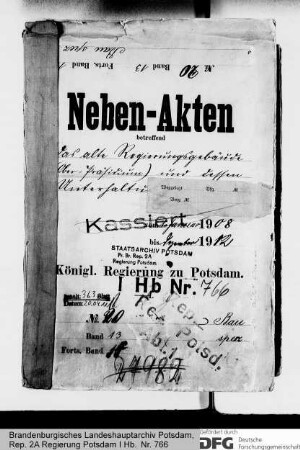 Nº 20 Band 13 Forts. Band 1
Bau spez
Neben-Akten
betreffend
das alte Regierungsgebäude
(Ober-Präsidium) und dessen
Unterhaltung
Kassiert
vom Januar 1908
bis Dezember 1912
STAATSARCHIV POTSDAM
Pr. Br. Rep. 2A
Regierung Potsdam
Königl. Regierung zu Potsdam.
I Hb Nr. 766
363
Nº 20
Bau
Band 13
spez
Forts. Band
Brandenburgisches Landeshauptarchiv Potsdam,
Rep. 2A Regierung Potsdam I Hb Nr. 766
Gefördert durch
DFG Deutsche
Forschungsgemeinschaft